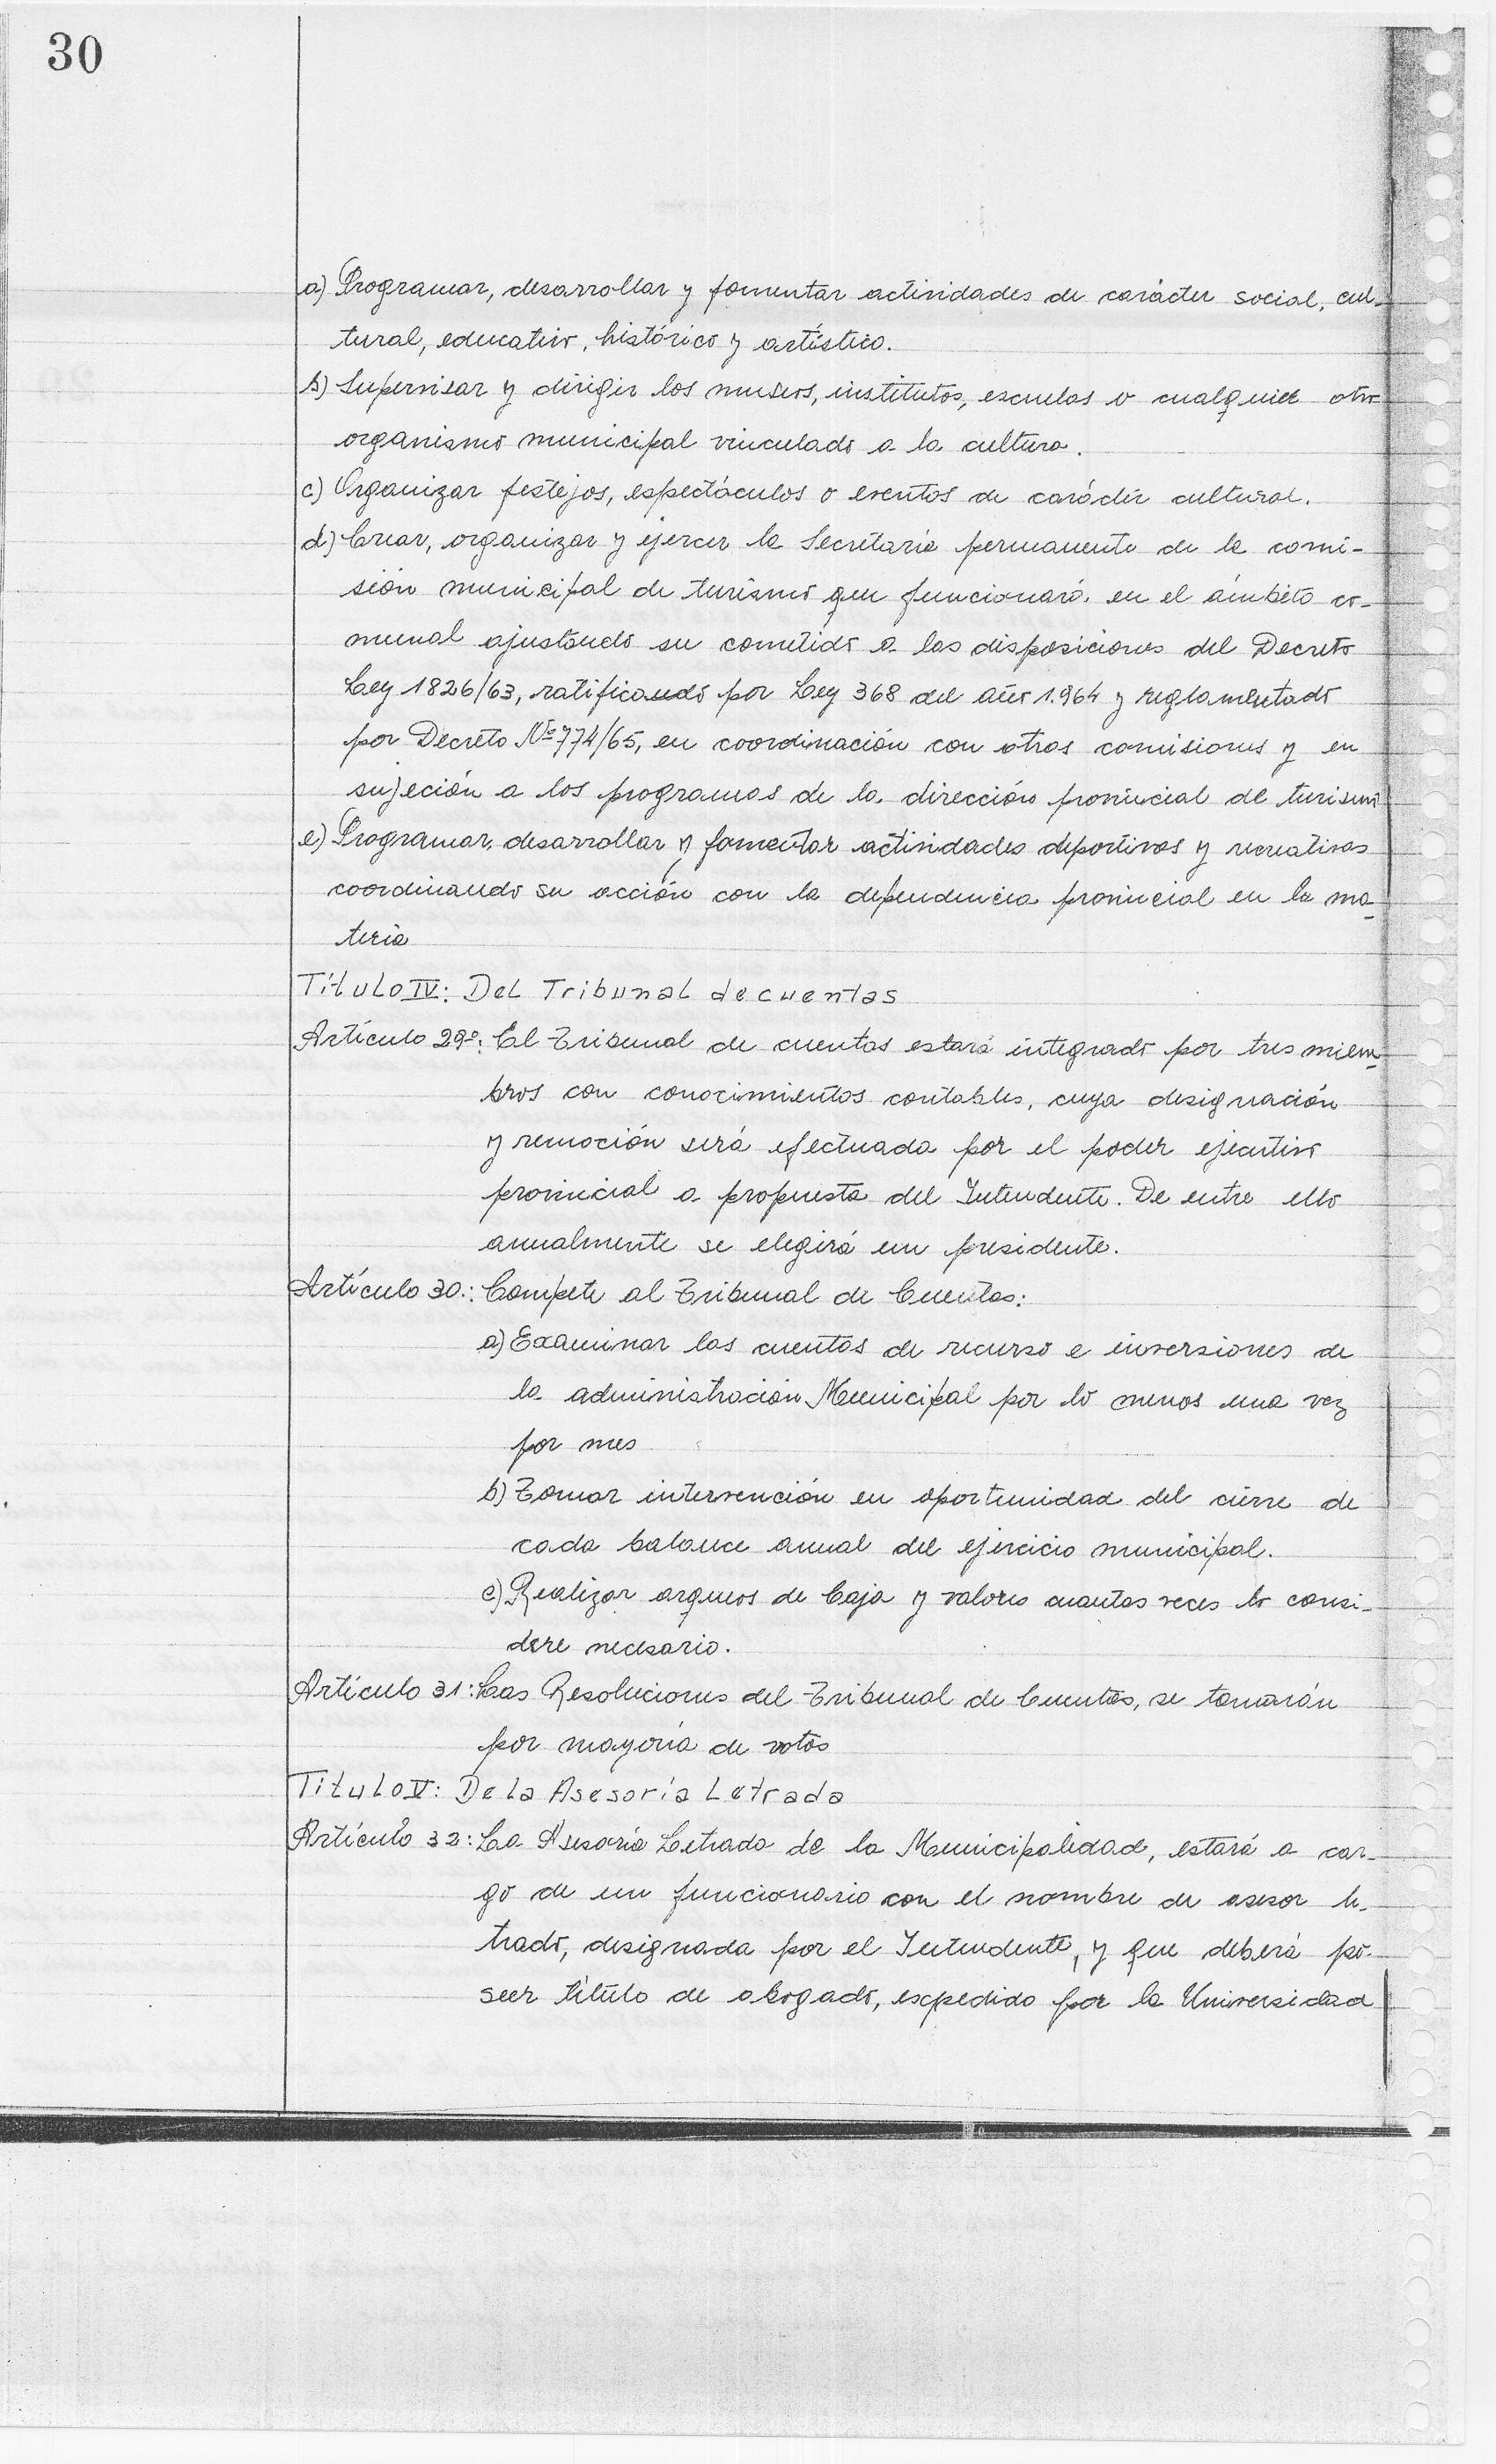 30
a) Programar, desarrollar y fomentar actividades de carácter social, cul-
tural, educativo, histórico y artístico.
b) Supervisar y dirigir los museos, institutos, escuelas o cualquier otro
organismo municipal vinculado a la cultura.
c) Organizar festejos, espectáculos o eventos de carácter cultural.
d) Crear, organizar y ejercer la Secretaría permanente de la comi-
sión municipal de turismo que funcionará en el ámbito co-
munal ajustando su cometido a las disposiciones del Decreto
Ley 1826/63, ratificando por Ley 368 del año 1.964 y reglamentado
por Decreto Nº 774/65, en coordinación con otras comisiones y en
sujeción a los programas de la dirección provincial de turismo
e) Programar, desarrollar y fomentar actividades deportivas y recreativas
coordinando su acción con la dependencia provincial en la ma-
teria
Título IV: Del Tribunal de cuentas
Artículo 29º: El Tribunal de cuentas estará integrado por tres miem-
bros con conocimientos contables, cuya designación
y remoción será efectuada por el poder ejecutivo
provincial a propuesta del Intendente. De entre ello
anualmente se elegirá un presidente.
Artículo 30.: Compete al Tribunal de Cuentas:
a) Examinar las cuentas de recurso e inversiones de
la administración Municipal por lo menos una vez
por mes
b) Tomar intervención en oportunidad del cierre de
cada balance anual del ejercicio municipal.
c) Realizar arqueos de Caja y valores cuantas veces lo consi-
dere necesario.
Artículo 31: Las Resoluciones del Tribunal de Cuentas, se tomarán
por mayoría de votos
Título V: De la Asesoría Letrada
Artículo 32: La Asesoría Letrada de la Municipalidad, estará a car-
go de un funcionario con el nombre de asesor le-
trado, designada por el Intendente, y que deberá po-
seer título de abogado, expedido por la Universidad